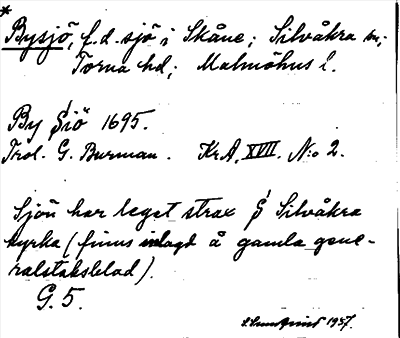 *
Bysjö, f.d. sjö i Skåne; Silvåkra sn;
Torna hd; Malmöhus l.
By Siö 1695.
Trol. G. Burman. Kr.A. XVII. N:o 2.
Sjön har legat strax S Silvåkra
kyrka (finns inlagd å gamla gene-
ralstabsblad).
G. 5.
1957.